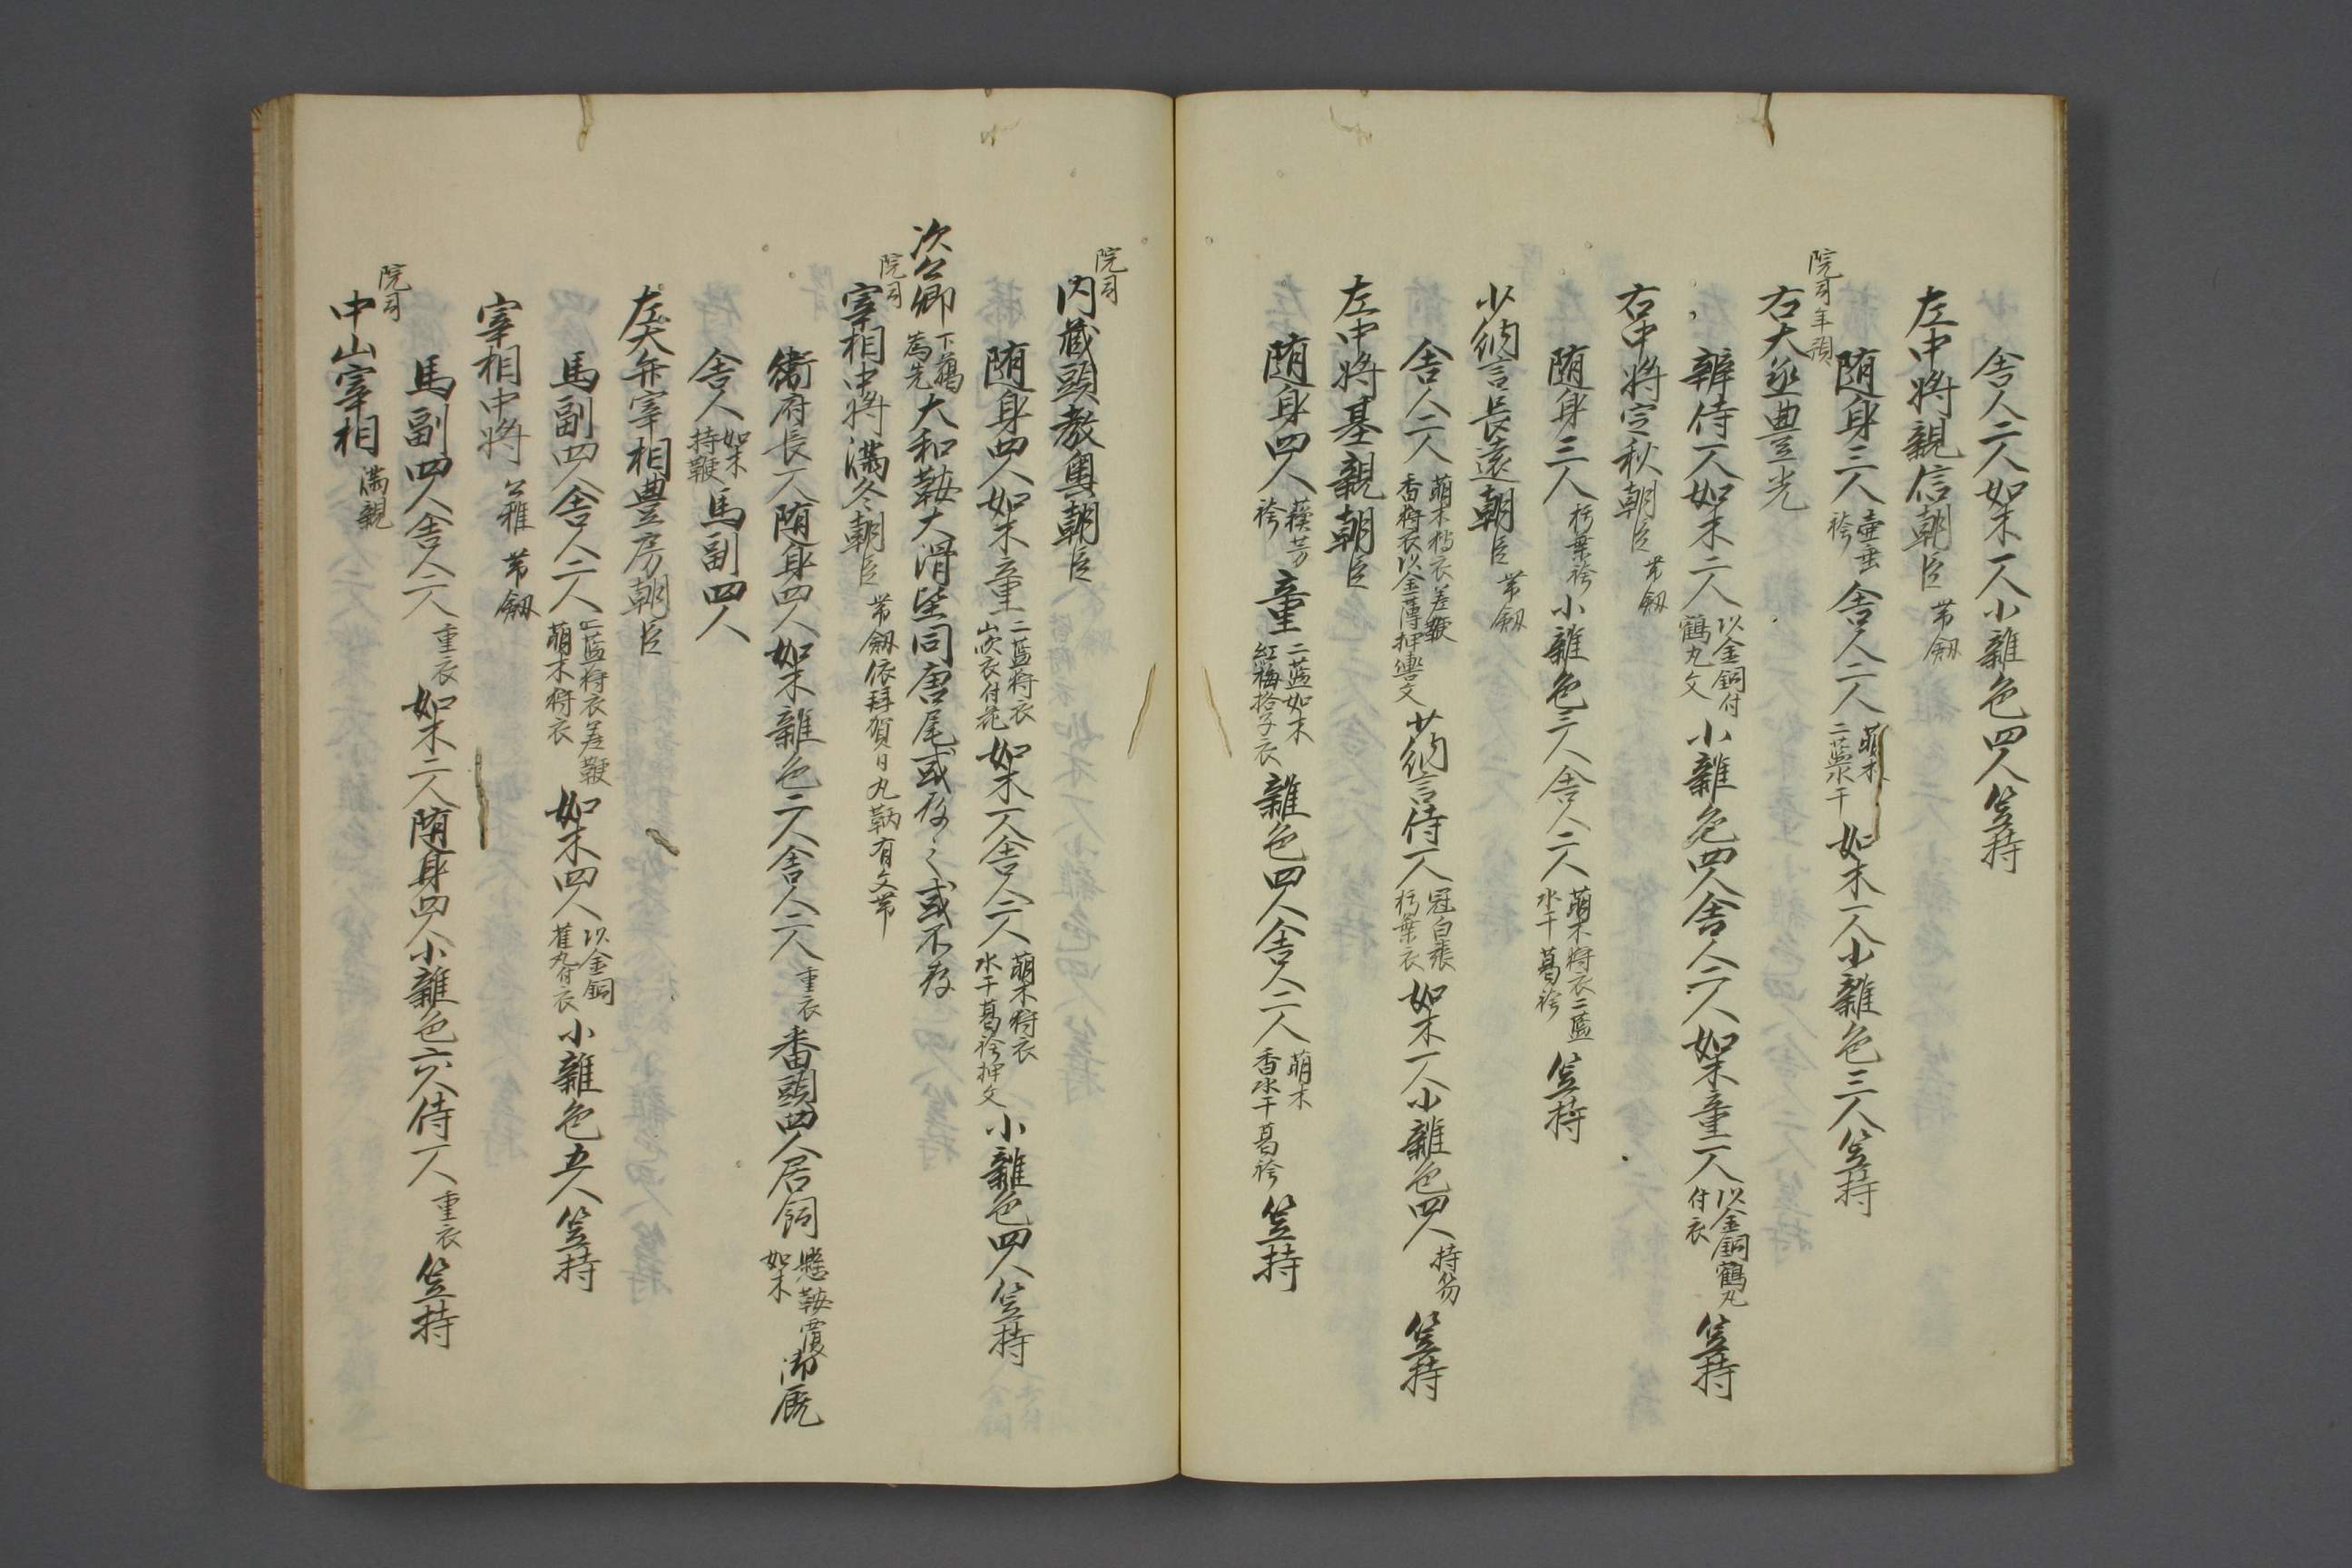 舎人二人如木一人小雑色四人笠持
左中将親信朝臣 帯劔
随身三人 壺垂袴 舎人二人 萌木二藍水干 如木一人小雑色三人笠持
院司年預
右大丞豊光
辨侍一人如木二人 以金銅付鶴丸文 小雑色四人舎人二人如木童一人 以金銅鶴丸付衣 笠持
右中将定秋朝臣 帯劔
随身三人 朽葉袴 小雑色三人舎人二人 萌木狩衣二藍水干葛袴 笠持
少納言長遠朝臣 帯劔
舎人二人 萌木狩衣差鞭香狩衣以金薄押轡文 少納言侍一人 冠白張朽葉衣 如木一人小雑色四人 持笏 笠持
左中将基親朝臣
随身四人 蘇芳袴 童 二藍如木紅梅格子衣 雑色四人舎人二人 萌木香水干葛袴 笠持
院司
内蔵頭教興朝臣
随身四人如木童 二藍狩衣山吹衣付花 如木一人舎人二人 萌木狩衣水干葛袴押文 小雑色四人笠持
次公卿 下臈為先 大和鞍大滑出同唐尾或存之或不存
院司
宰相中将満冬朝臣 帯劔依拝賀日丸鞆有文帯
衛府長一人随身四人如木雑色二人舎人二人 重衣 番頭四人居飼 懸鞍覆如木 御厩
舎人 如木持鞭 馬副四人
左大弁宰相豊房朝臣
馬副四人舎人二人 二藍狩衣差鞭萌木狩衣 如木四人 以金銅雀丸付衣 小雑色五人笠持
宰相中将 公雅 帯劔
馬副四人舎人二人 重衣 如木二人随身四人小雑色六人侍一人 重衣 笠持
院司
中山宰相 満親